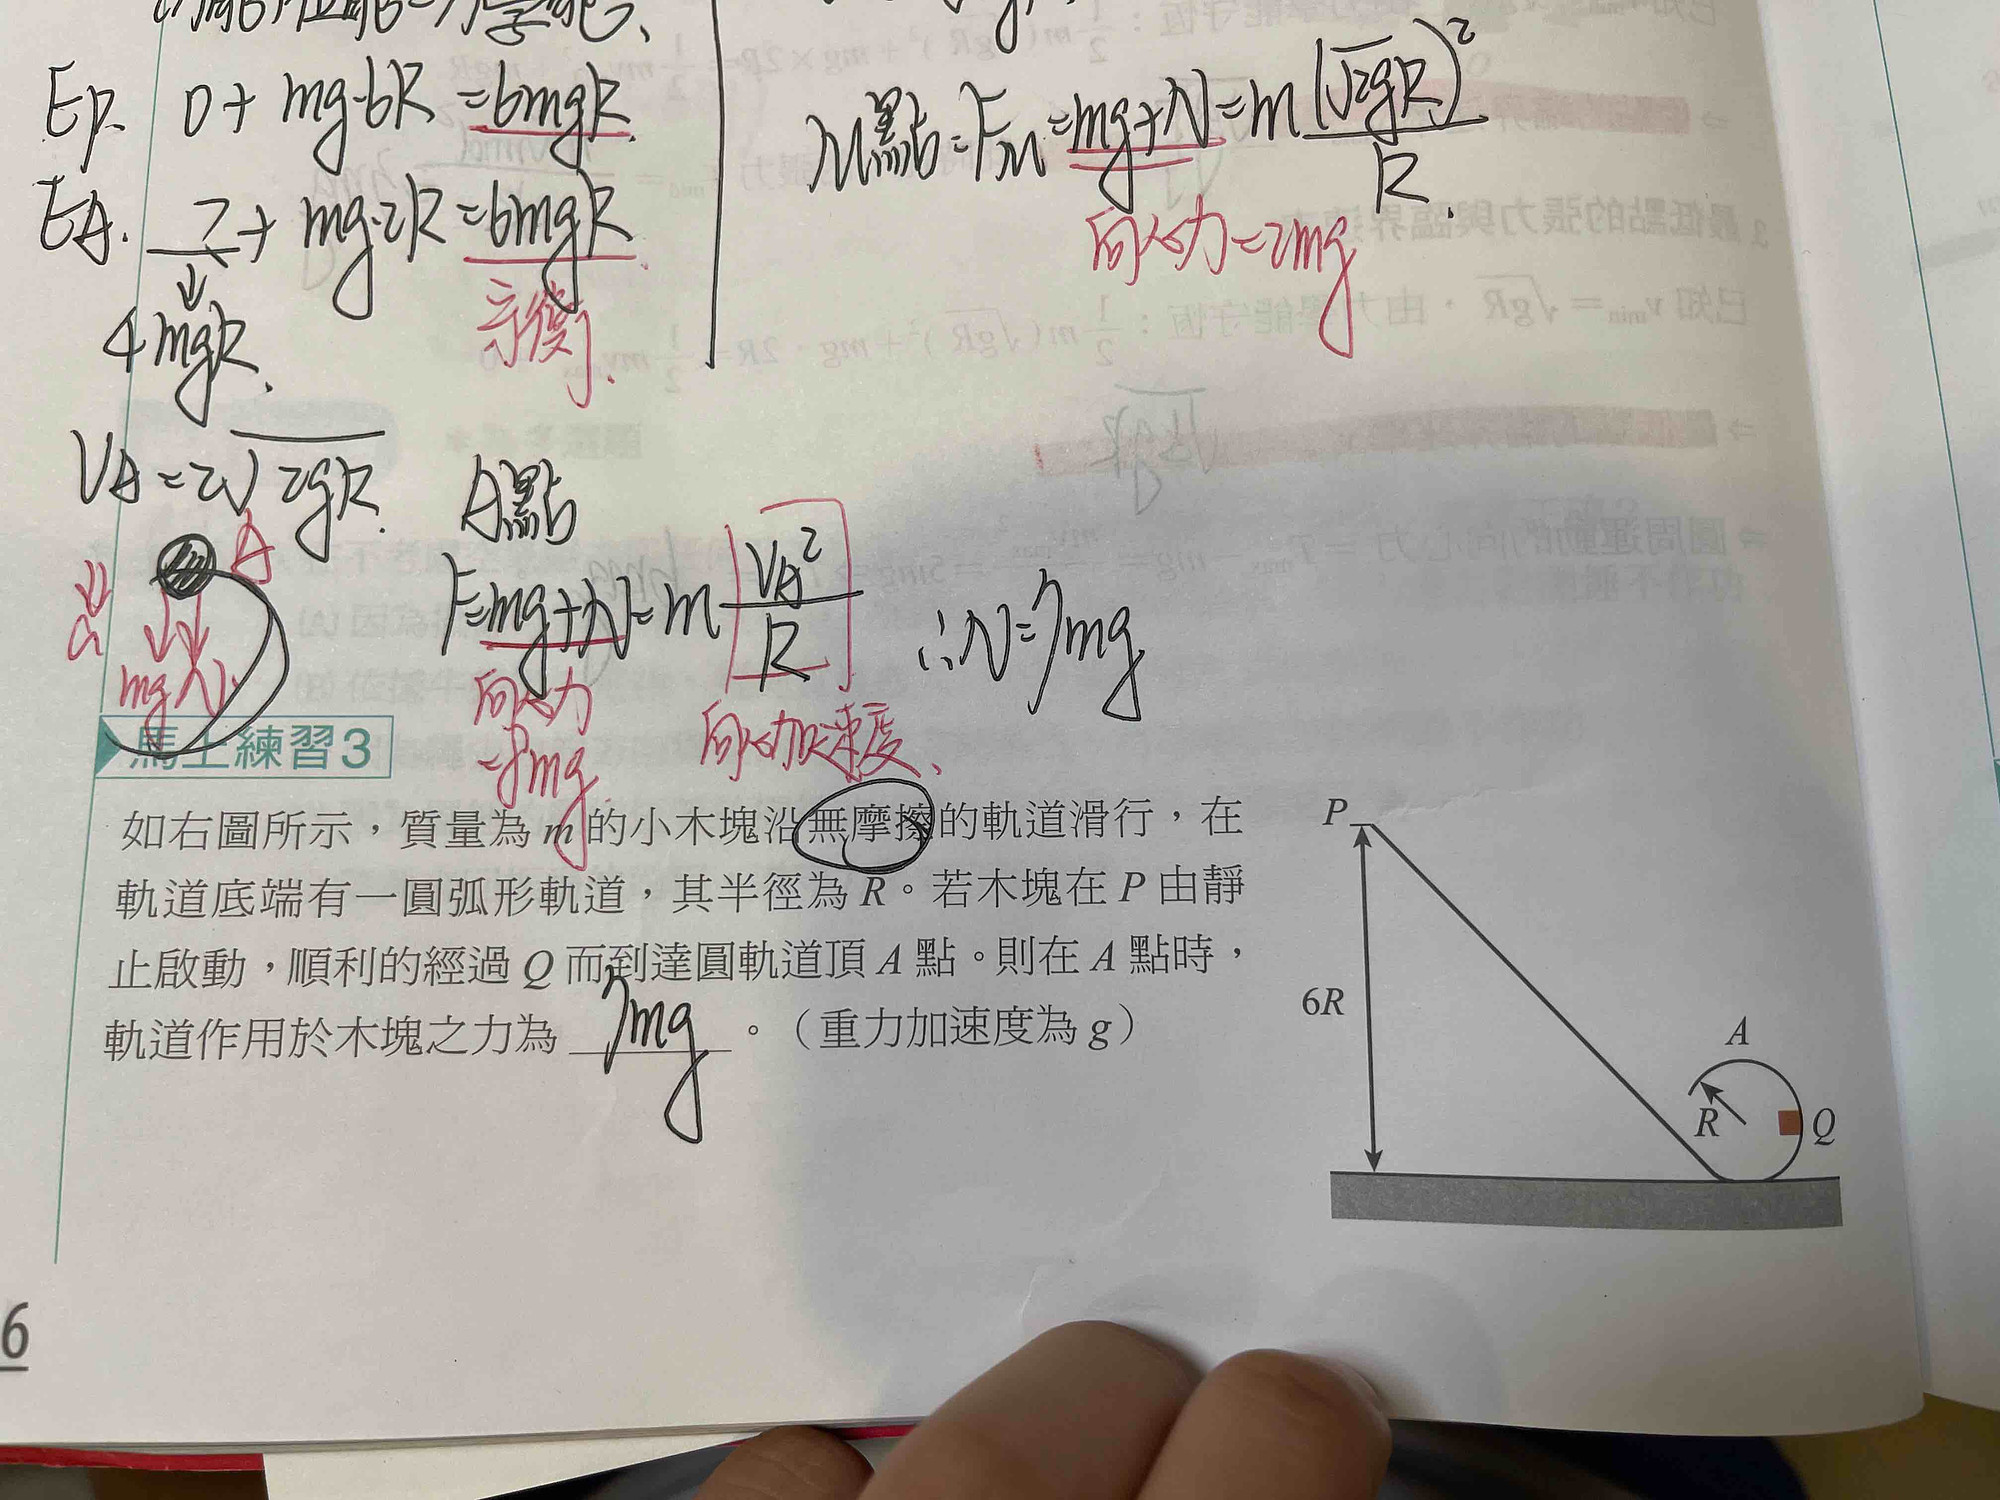 Ep. 0 + mg·6R = 6mgR.
EA. ? + mg·2R = 6mgR
↓
4mgR.
守衡.
VA = 2√2gR.
M點 = FM = mg + N = m (√2gR)² / R.
向心力 = 2mg
A點
F = mg + N = m VA² / R
∴ N = 7mg
向心力
= 8mg
向心加速度、
A
a
mg N
馬上練習3
如右圖所示，質量為 m 的小木塊沿無摩擦的軌道滑行，在
軌道底端有一圓弧形軌道，其半徑為 R。若木塊在 P 由靜
止啟動，順利的經過 Q 而到達圓軌道頂 A 點。則在 A 點時，
軌道作用於木塊之力為 7mg 。（重力加速度為 g）
P
6R
A
R
Q
6